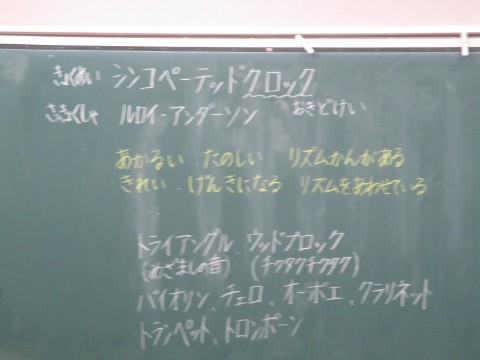 きょくめい シンコペーテッドクロック
さっきょくしゃ ルロイ・アンダーソン おきどけい
あかるい たのしい リズムかんがある
きれい．げんきになる リズムをあわせている
トライアングル、ウッドブロック
(めざましの音) (チクタクチクタク)
バイオリン、チェロ、オーボエ、クラリネット
トランペット、トロンボーン